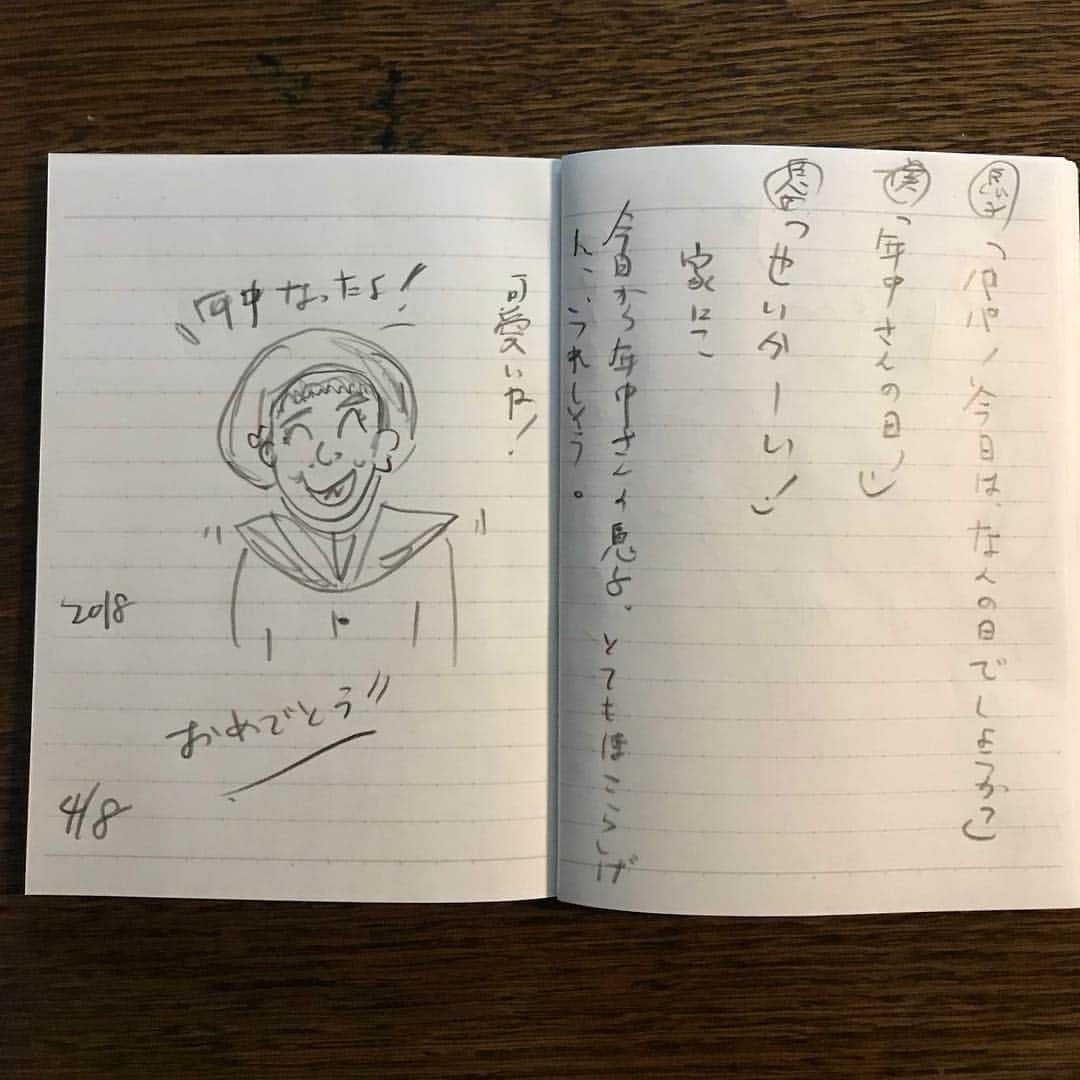 息子「パパ!今日は、なんの日でしょうか?」
僕「年中さんの日!」
息子「せいかーい!」
家にこ
今日から年中さんの息子。とてもほこらしげ
んに、うれしそう。
可愛いや!
年中なったよ!
おめでとう!!
2018
4/8